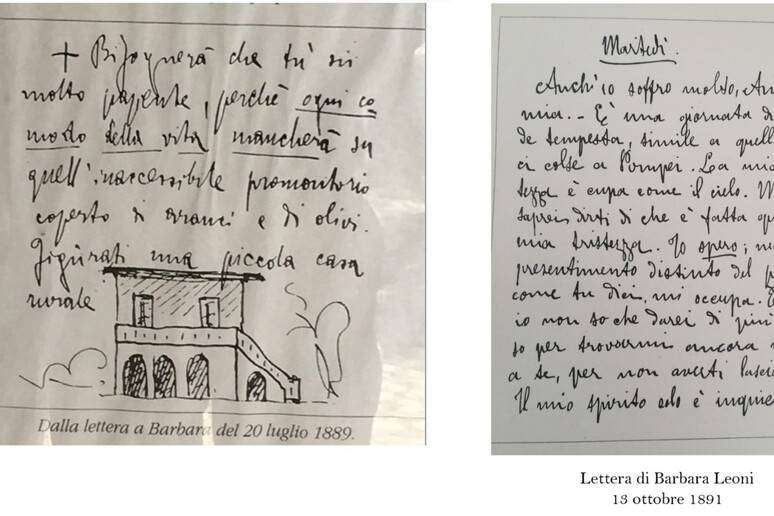 + Bisognerà che tu sii
molto paziente, perchè ogni co
modo della vita mancherà su
quell'inaccessibile promontorio
coperto di aranci e di olivi.
Figùrati una piccola casa
rurale
Dalla lettera a Barbara del 20 luglio 1889.
Martedì.
Anch'io soffro molto,
mia. – È una giornata di
de tempesta, simile a quell
ci colse a Pompei. La mia
tezza è cupa come il cielo.
saprei dirti di che è fatta qu
mia tristezza. Io spero;
presentimento distinto del p
come tu dici, mi occupa.
io non so che darei di
so per trovarmi ancora
a te, per non averti lasci
Il mio spirito solo è inquie
Lettera di Barbara Leoni
13 ottobre 1891